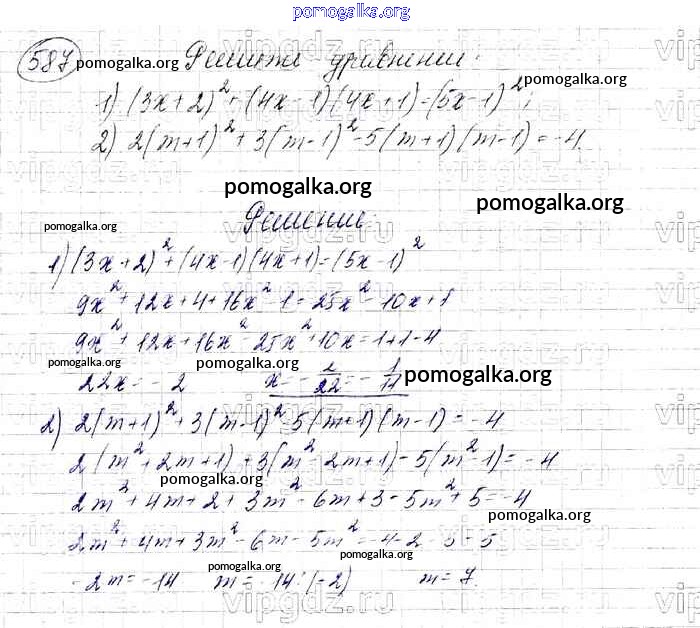 pomogalka.org
587 Решите уравнения:
pomogalka.org
1) (3x+2)² + (4x-1)(4x+1) = (5x-1)²;
pomogalka.org
2) 2(m+1)² + 3(m-1)² - 5(m+1)(m-1) = -4.
pomogalka.org
pomogalka.org
pomogalka.org
Решение
1) (3x+2)² + (4x-1)(4x+1) = (5x-1)²
9x² + 12x + 4 + 16x² - 1 = 25x² - 10x + 1
9x² + 12x + 16x² - 25x² + 10x = 1 + 1 - 4
pomogalka.org
pomogalka.org
22x = -2 x = -2/22 = -1/11
pomogalka.org
2) 2(m+1)² + 3(m-1)² - 5(m+1)(m-1) = -4
2(m² + 2m + 1) + 3(m² - 2m + 1) - 5(m² - 1) = -4
pomogalka.org
2m² + 4m + 2 + 3m² - 6m + 3 - 5m² + 5 = -4
pomogalka.org
2m² + 4m + 3m² - 6m - 5m² = -4 - 2 - 3 - 5
pomogalka.org
pomogalka.org
-2m = -14 m = -14 : (-2) m = 7.
pomogalka.org
vipgdz.ru